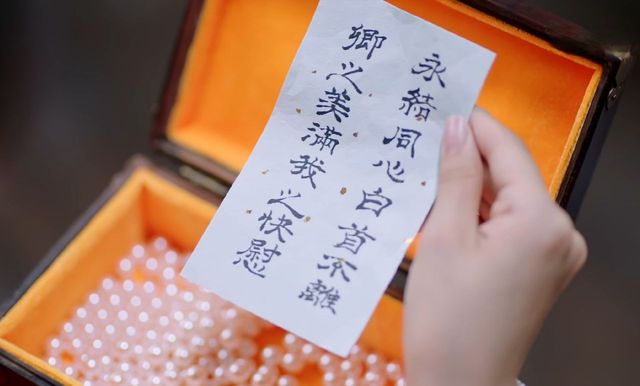 永結同心白首不離
卿之美滿我之快慰